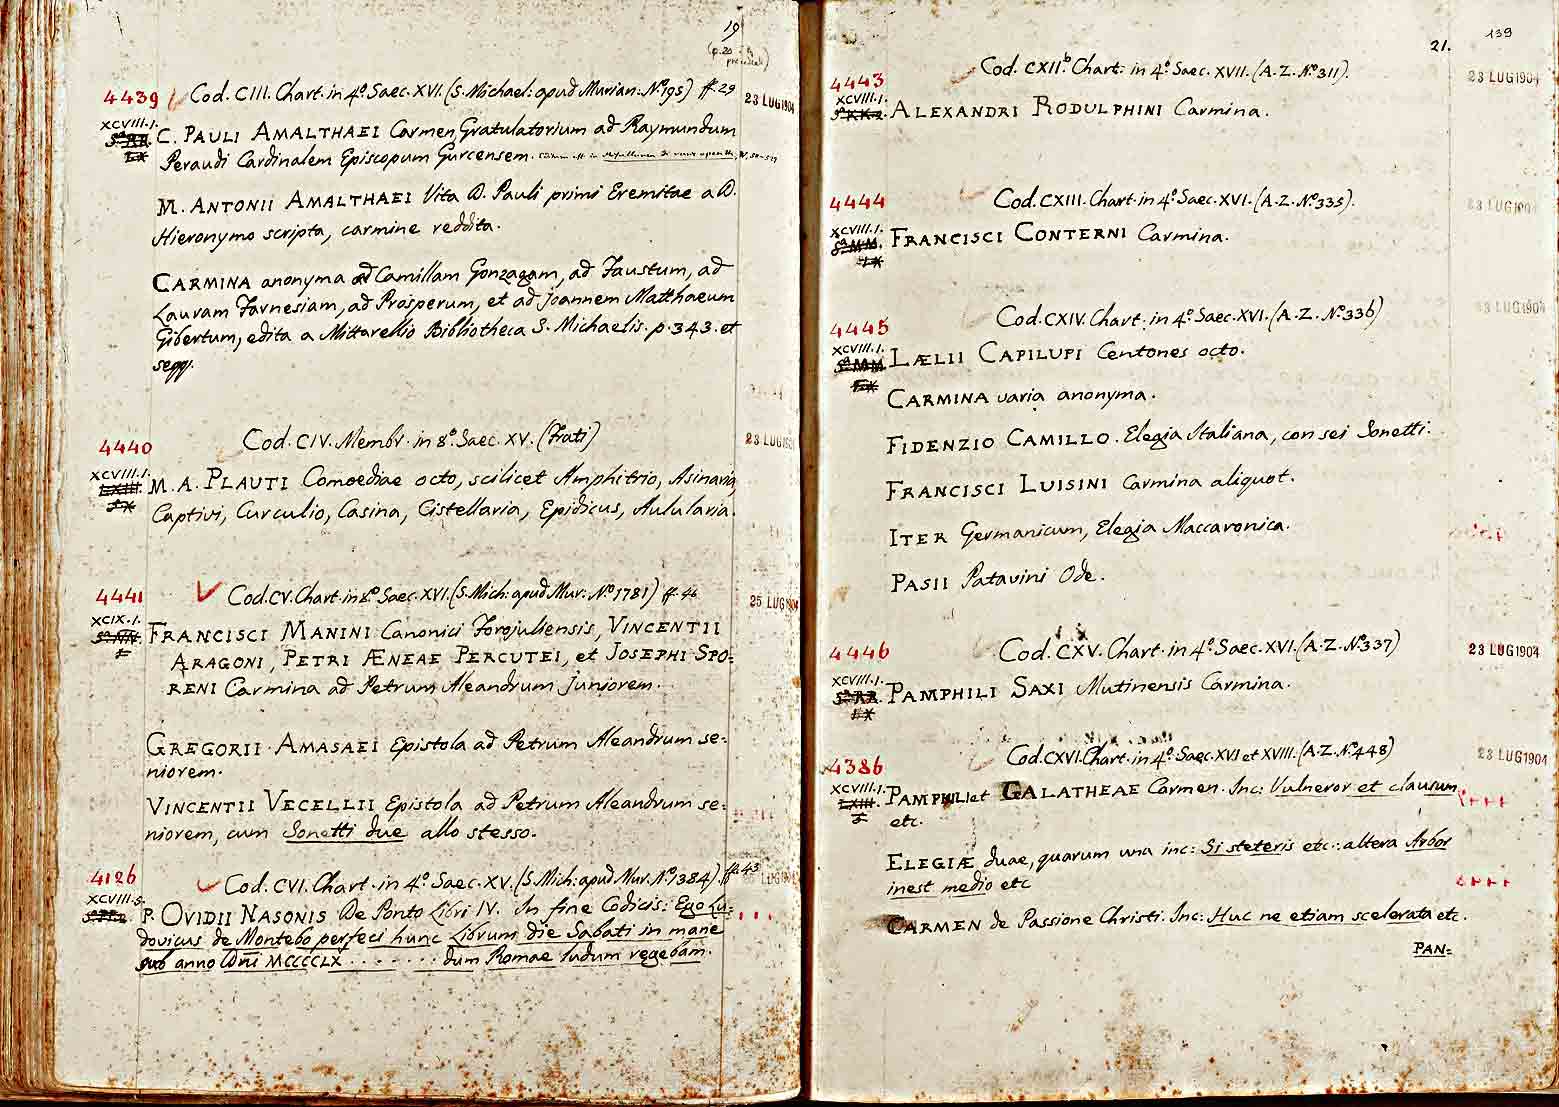 19
4439 Cod. CIII. Chart. in 4º. Saec. XVI. (S. Michael: apud Murian: Nº. 195) ff. 29 23 LUG 1904
XCVIII.1. C. PAULI AMALTHAEI Carmen Gratulatorium ad Raymundum
Peraudi Cardinalem Episcopum Gurcensem.
M. ANTONII AMALTHAEI Vita D. Pauli primi Eremitae a D.
Hieronymo scripta, carmine reddita.
CARMINA anonyma ad Camillam Gonzagam, ad Faustum, ad
Lauram Farnesiam, ad Prosperum, et ad Joannem Matthaeum
Gibertum, edita a Mittarellio Bibliotheca S. Michaelis. p. 343. et
seqq.
4440 Cod. CIV. Membr. in 8º. Saec. XV. (Frati) 23 LUG
XCVIII.1. M. A. PLAUTI Comoediae octo, scilicet Amphitrio, Asinaria,
LXIII. Captivi, Curculio, Casina, Cistellaria, Epidicus, Aulularia.
4441 Cod. CV. Chart. in 8º. Saec. XVI. (S. Mich: apud Mur: Nº. 1781) ff. 46 25 LUG 1904
XCIX.1. FRANCISCI MANINI Canonici Forojuliensis, VINCENTII
ARAGONI, PETRI ÆNEAE PERCUTEI, et JOSEPHI SPO=
RENI Carmina ad Petrum Aleandrum juniorem.
GREGORII AMASAEI Epistola ad Petrum Aleandrum se=
niorem.
VINCENTII VECELLII Epistola ad Petrum Aleandrum se=
niorem, cum Sonetti due allo stesso.
4126 Cod. CVI. Chart. in 4º. Saec. XV. (S. Mich: apud Mur. Nº. 1384). ff. 43
XCVIII.5. P. OVIDII NASONIS De Ponto Libri IV. In fine Codicis: Ego Lu=
dovicus de Montebo perfeci hunc Librum die Sabati in mane
sub anno Dni MCCCCLX . . . . . . . dum Romae ludum regebam.
139
21.
4443 Cod. CXII.b Chart. in 4º. Saec. XVII. (A. Z. Nº. 311). 23 LUG 1904
XCVIII.1. ALEXANDRI RODULPHINI Carmina.
4444 Cod. CXIII. Chart. in 4º. Saec. XVI. (A. Z. Nº. 335). 23 LUG 1904
XCVIII.1. FRANCISCI CONTERNI Carmina.
4445 Cod. CXIV. Chart. in 4º. Saec. XVI. (A. Z. Nº. 336) 23 LUG 1904
XCVIII.1. LÆLII CAPILUPI Centones octo.
CARMINA varia anonyma.
FIDENZIO CAMILLO. Elegia Italiana, con sei Sonetti.
FRANCISCI LUISINI Carmina aliquot.
ITER Germanicum, Elegia Maccaronica.
PASII Patavini Ode.
4446 Cod. CXV. Chart. in 4º. Saec. XVI. (A. Z. Nº. 337) 23 LUG 1904
XCVIII.1. PAMPHILI SAXI Mutinensis Carmina.
4386 Cod. CXVI. Chart. in 4º. Saec. XVI et XVIII. (A. Z. Nº. 448) 23 LUG 1904
XCVIII.1. PAMPHILI et GALATHEAE Carmen. Inc: Vulneror et clausum
LXIII. etc.
ELEGIÆ duae, quarum una inc: Si steteris etc.: altera Arbor
inest medio etc
CARMEN de Passione Christi. Inc: Huc ne etiam scelerata etc.
PAN=